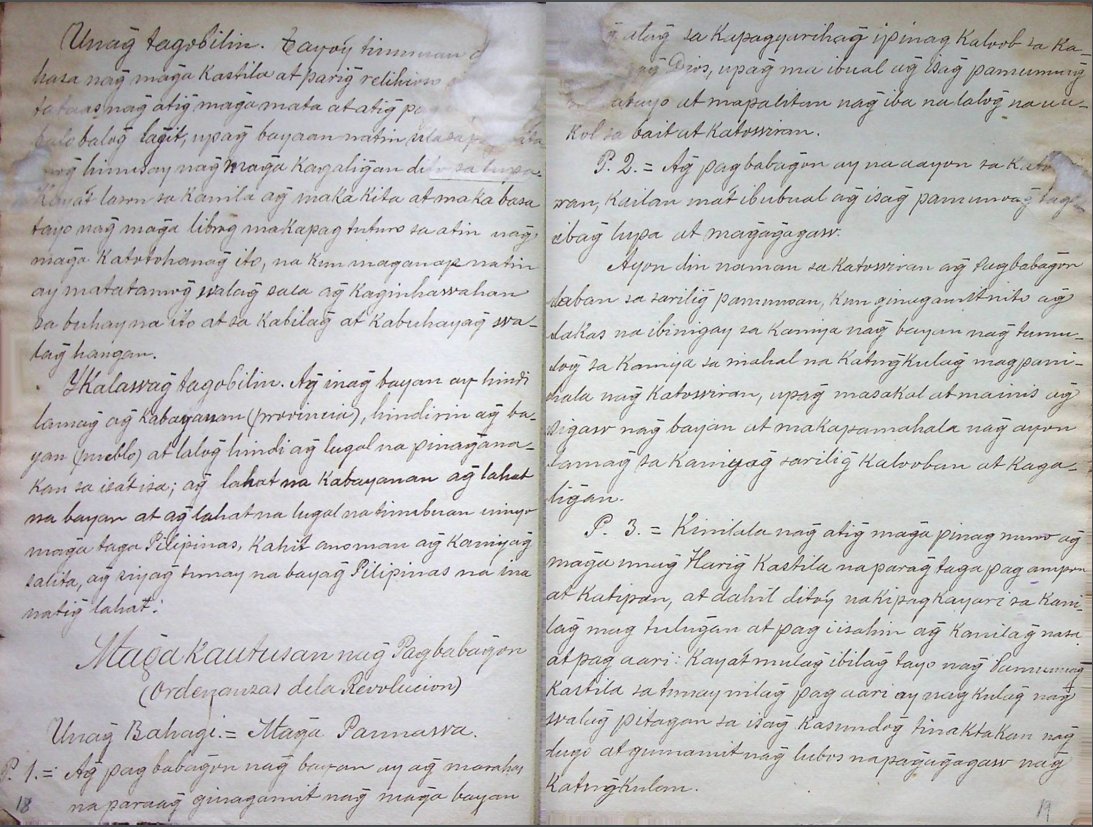 Unag̃ tagobilin. Tayo'y tinuruan
hasa nag̃ mag̃a Kastila at parig̃ relihioso
tataas nag̃ atig̃ mag̃a mata at atig̃
balobalog̃ lag̃it, upag̃ bayaan natin
himusay nag̃ mag̃a Kagaligan dito sa lupa.
Kayat laon sa kanila ag̃ makakita at makabasa
tayo nag̃ mag̃a librog̃ makapagtuturo sa atin nag̃
mag̃a katotohanag̃ ito, na kun maganap natin
ay matatamog̃ walag̃ sala ag̃ kaginhawahan
sa buhay na ito at sa kabilag̃ at kabuhayag̃ wa-
lag̃ hangan.
Ykalawag̃ tagobilin. Ag̃ inag̃ bayan ay hindi
lamag̃ ag̃ kabayanan (provincia), hindi rin ag̃ ba-
yan (pueblo) at lalog̃ hindi ag̃ lugal na pinag̃ana-
kan sa isa't isa; ag̃ lahat na kabayanan ag̃ lahat
na bayan at ag̃ lahat na lugal na tinubuan
mag̃a taga Pilipinas, kahit anoman ag̃ kaniyag̃
salita, ag̃ siyag̃ tunay na bayag̃ Pilipinas na ina
natig̃ lahat.
Mag̃a kautusan nag̃ Pagbabag̃on
(Ordenanzas de la Revolucion)
Unag̃ Bahagi. = Mag̃a Paunawa.
P. 1. = Ag̃ pagbabag̃on nag̃ bayan ay ag̃ marahas
na paraag̃ ginagamit nag̃ mag̃a bayan
18
alag̃ sa kapagyarihag̃ ipinagkaloob sa ka-
Dios, upag̃ maibual ag̃ isag̃ pamunuag̃
at mapalitan nag̃ iba na lalog̃ nauu-
kol sa bait at katowiran.
P. 2. = Ag̃ pagbabag̃on ay naaayon sa kato
wiran, kailan ma't ibubual ag̃ isag̃ pamunuag̃ tag
ibag̃ lupa at mag̃ag̃agaw.
Ayon din naman sa katowiran ag̃ pagbabag̃on
laban sa sarilig̃ pamunoan, kun ginagamit nito ag̃
lakas na ibinigay sa kaniya nag̃ bayan nag̃ tumu-
log̃ sa kaniya sa mahal na katugkulag̃ magpani-
hala nag̃ katowiran, upag̃ masakal at mainis ag̃
sigaw nag̃ bayan at makapamahala nag̃ ayon
lamag̃ sa kaniyag̃ sarilig̃ kalooban at kaga-
ligan.
P. 3. = Kinilala nag̃ atig̃ mag̃a pinagnuno ag̃
mag̃a unag̃ Harig̃ Kastila na parag̃ tagapagampon
at katipan, at dahil dito'y nakipagkayari sa kani-
lag̃ magtulug̃an at pagiisahin ag̃ kanilag̃ nasa
at pagaari: kaya't mulag̃ ibilag̃ tayo nag̃ Pamunuag̃
Kastila sa tunay nilag̃ pagaari ay nagkulag̃ nag̃
walag̃ pitagan sa isag̃ kasundog̃ tinaktakan nag̃
dugo at gumamit nag̃ lubos na pag̃ag̃agaw nag̃
katugkulan.
19